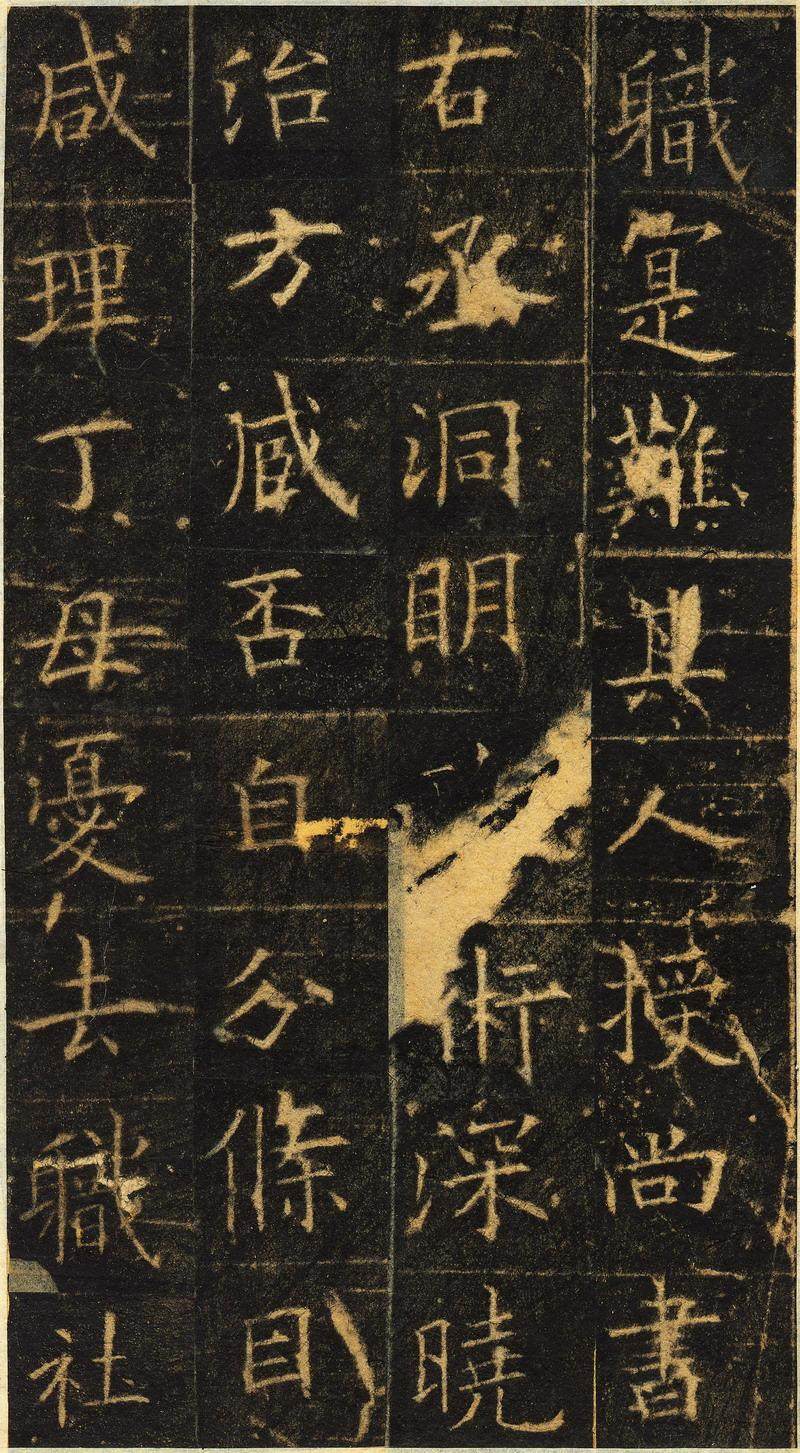 職寔難其人授尚書
右丞洞眀術深曉
治方臧否自分條目
咸理丁母憂去職社